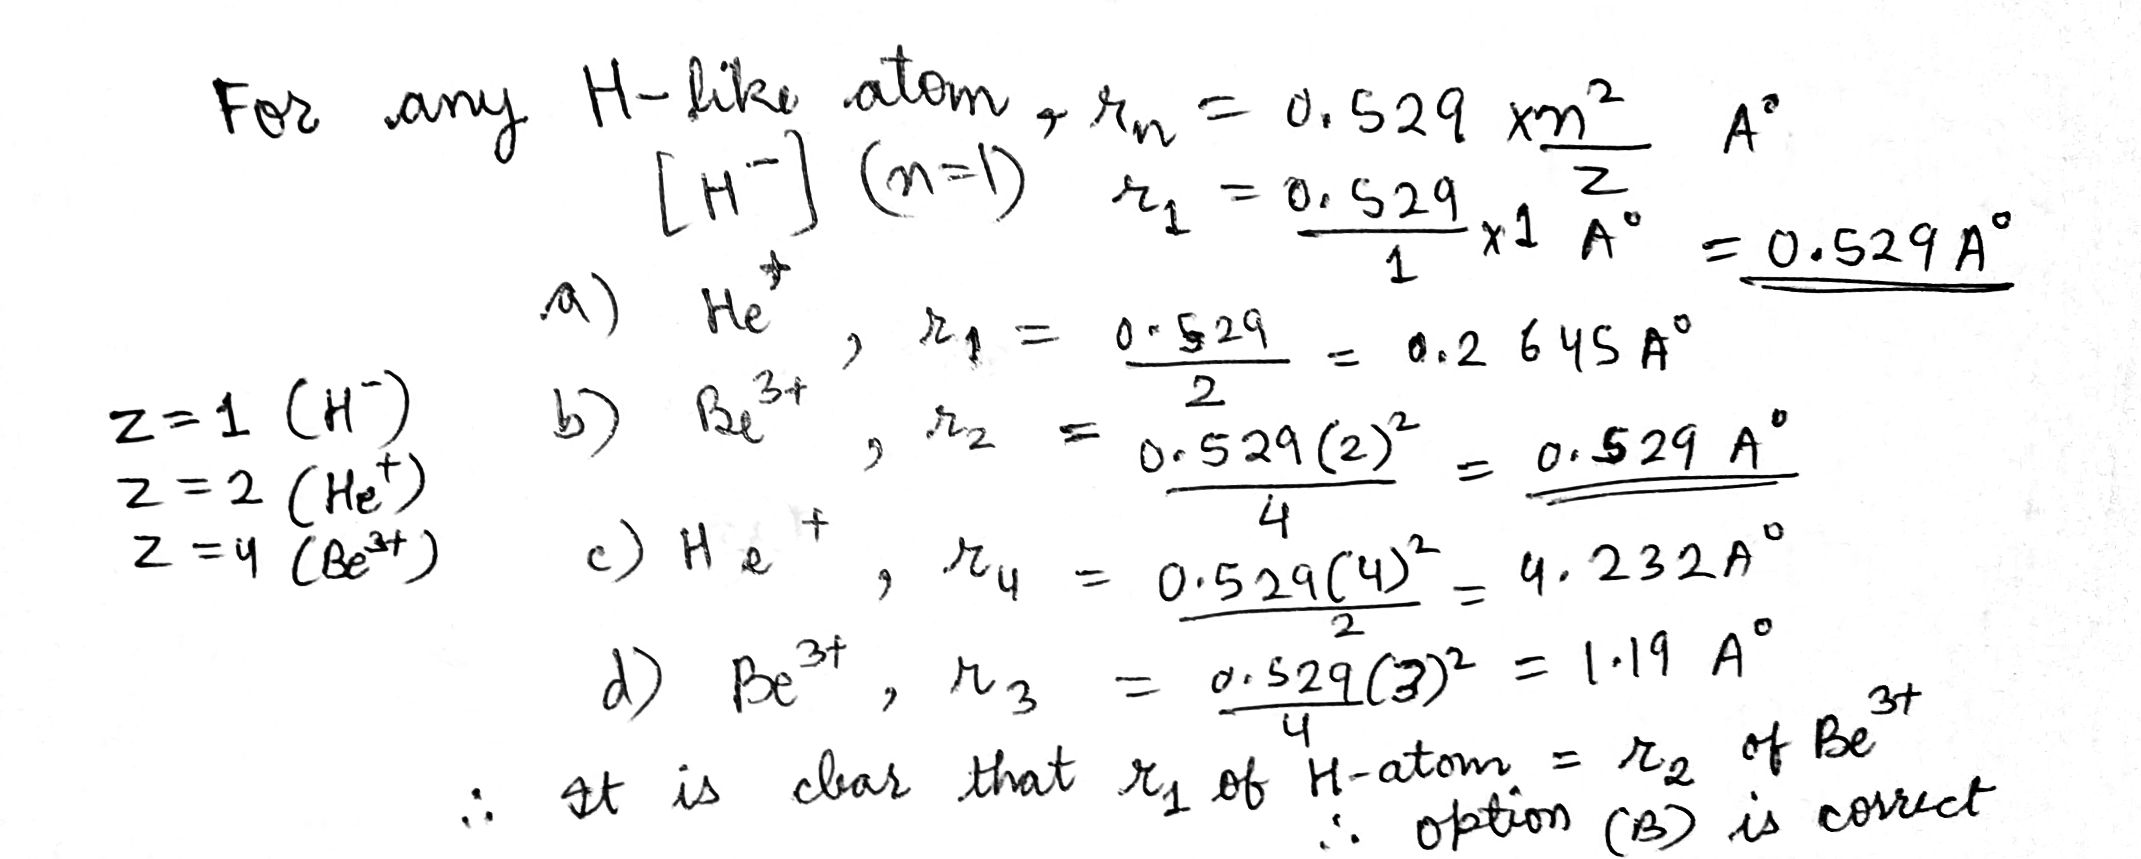 For any H-like atom, rₙ = 0.529 × n²/Z A°
[H⁻] (n=1) r₁ = 0.529/1 × 1 A° = 0.529 A°
a) He⁺, r₁ = 0.529/2 = 0.2645 A°
z = 1 (H⁻)
b) Be³⁺, r₂ = 0.529(2)²/4 = 0.529 A°
z = 2 (He⁺)
z = 4 (Be³⁺)
c) He⁺, r₄ = 0.529(4)²/2 = 4.232 A°
d) Be³⁺, r₃ = 0.529(3)²/4 = 1.19 A°
∴ It is clear that r₁ of H-atom = r₂ of Be³⁺
∴ option (B) is correct